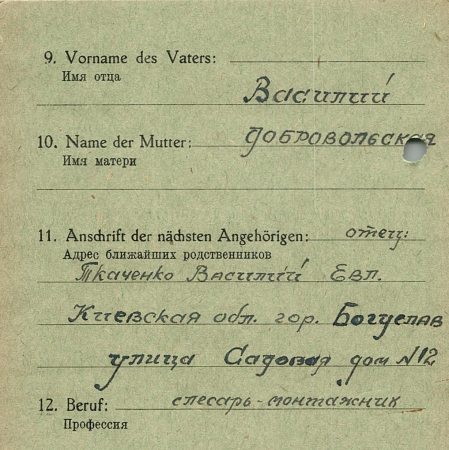 9. Vorname des Vaters:
Имя отца
Василий
10. Name der Mutter: Добровольская
Имя матери
11. Anschrift der nächsten Angehörigen: отец:
Адрес ближайших родственников
Ткаченко Василий Евл.
Киевская обл. гор. Богуслав
улица Садовая дом №12
12. Beruf: слесарь-монтажник
Профессия